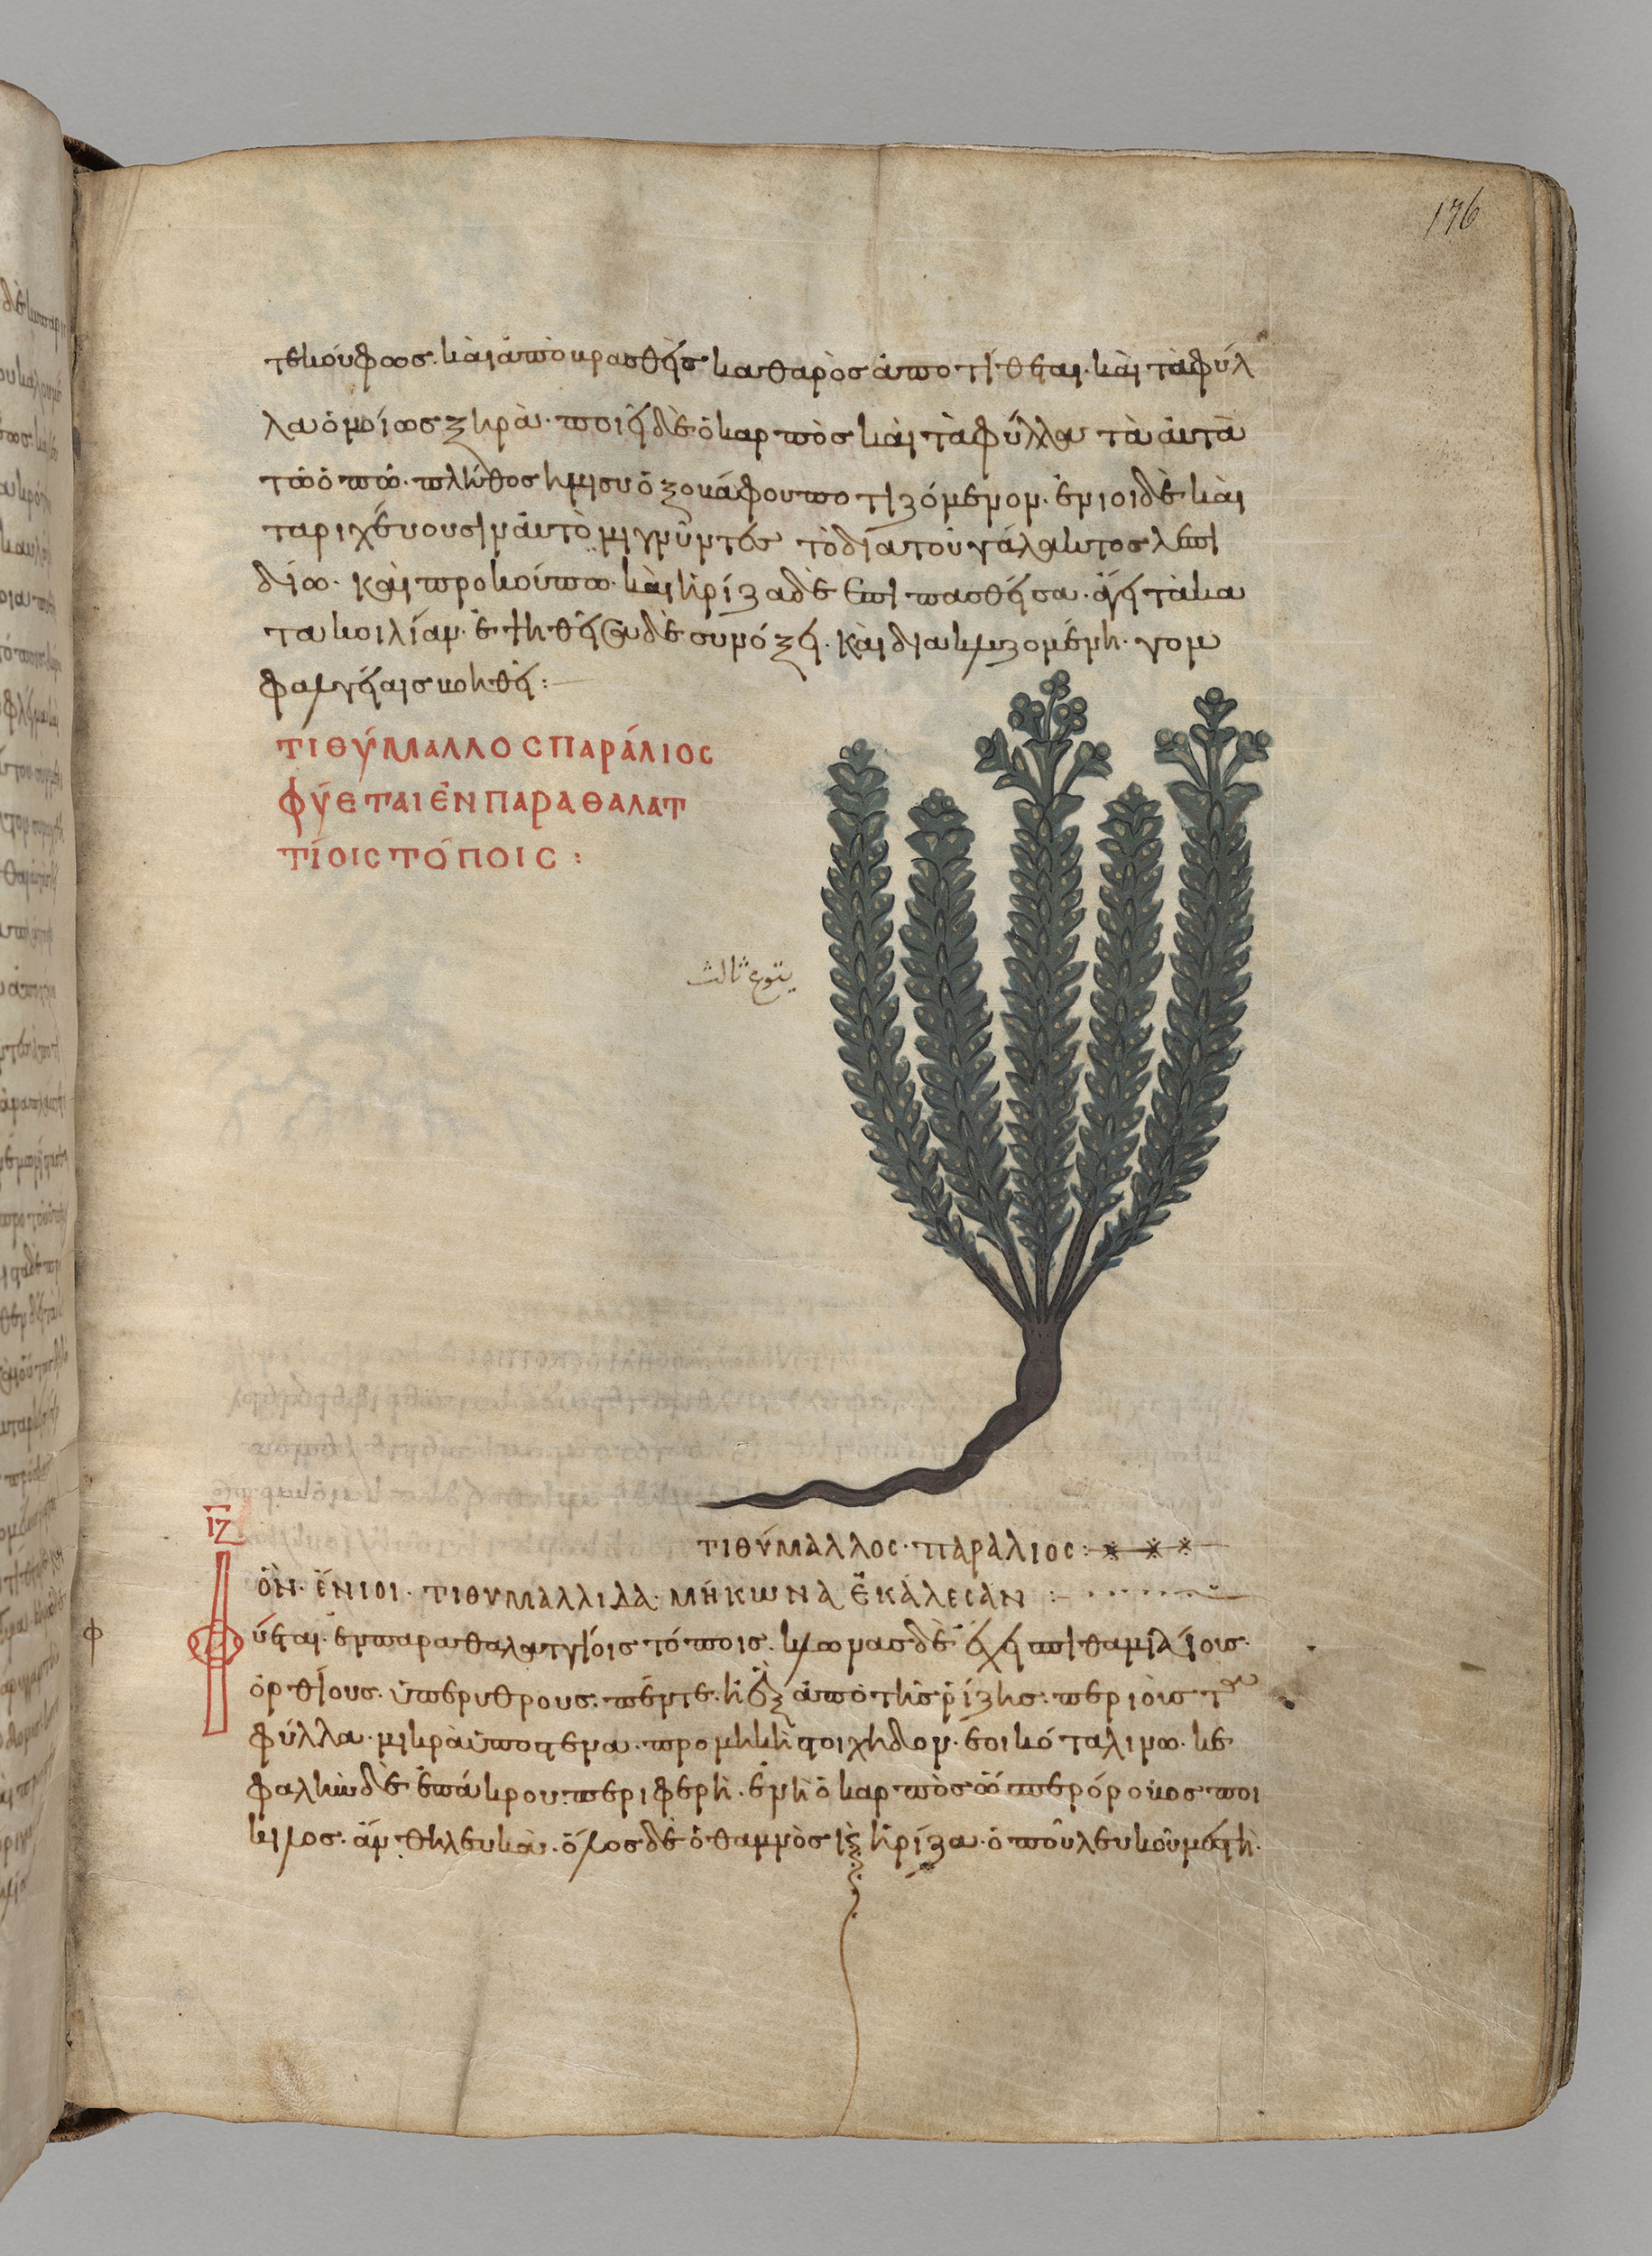 176
τε κούφως. καὶ ἀποκρασθεὶς καθαρὸς ἀποτίθεται. καὶ τὰ φύλ
λα ὁμοίως ξηρά. ποιεῖ δὲ ὁ καρπὸς καὶ τὰ φύλλα τὰ ἀυτὰ
τῶ ὀπῶ. πλῆθος ἥμισυ ὀξυβάφου ποτιζόμενον. ἔνιοι δὲ καὶ
ταριχέυουσιν ἀυτὸ μιγνῦντες τὸ διὰ τοῦ γάλακτος λεπι
δίω. καὶ προκούπω. καὶ ἡ ρίζα δὲ ἐπιπασθεῖσα. ἄγει τὰ κα
τα κοιλίαν. ἑψηθεῖσα δὲ συν όξει. καὶ διακλυζομένη. νομ
φαλγείαις βοηθεῖ :
ΤΙΘΥΜΑΛΛΟΣ ΠΑΡΆΛΙΟΣ
ΦΎΕΤΑΙ ἘΝ ΠΑΡΑΘΑΛΑΤ
ΤΊΟΙΣ ΤΌΠΟΙΣ :
يتوع ثالث
ΙΖ
ΤΙΘΎΜΑΛΛΟΣ · ΠΑΡΑΛΙΟΣ :
ὋΝ · ἜΝΙΟΙ · ΤΙΘΥΜΑΛΛΙΔΑ · ΜΉΚΩΝΑ ἘΚΆΛΕΣΑΝ :
Φ
Φύεται. ἐν παραθαλαττίοις τόποις. κλῶνας δὲ ἔχει πιθαμιαίους.
ὀρθίους. ὑπερύθρους. πέντε. ἢ ἓξ ἀπὸ τῆς ρίζης. περὶ οἷς τὰ
φύλλα. μικρὰ ὑπόστενα. προμήκη στοιχηδόν. ἐοικότα λίνω. κε
φαλὴ δὲ ἐπ ἄκρου περιφερὴ. ἐν ἧ ὁ καρπὸς ὥσπερ όροβος ποι
κίλος. ἄνθη λευκά. ὅλος δὲ ὁ θάμνος καὶ ἡ ρίζα. ὀποῦ λευκοῦ μεστὴ.